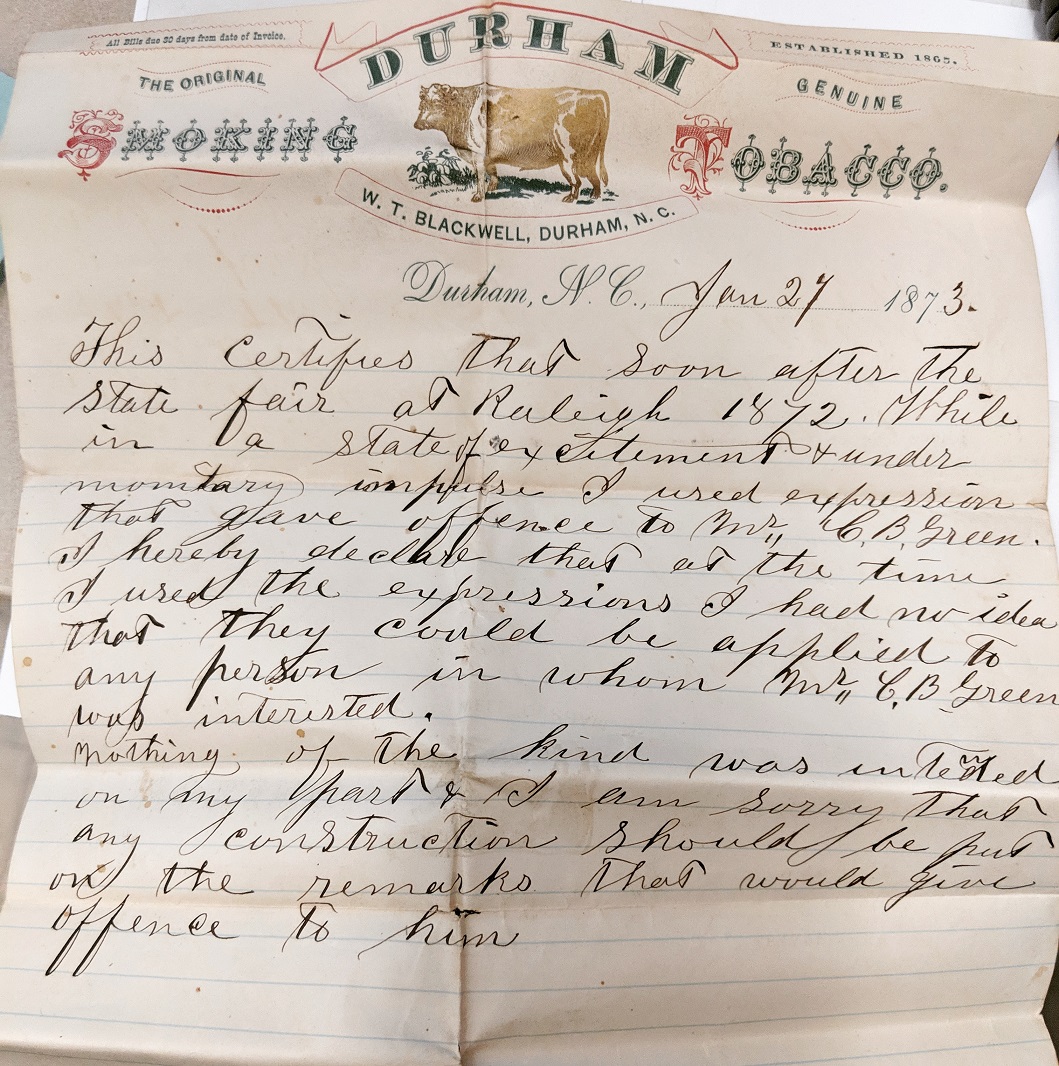 All Bills due 30 days from date of Invoice.
DURHAM
ESTABLISHED 1865.
THE ORIGINAL
GENUINE
SMOKING
TOBACCO.
W. T. BLACKWELL, DURHAM, N. C.
Durham, N. C., Jan 27 1873.
This certifies that soon after the
state fair at Raleigh 1872. While
in a state of excitement & under
momtary impulse I used expression
that gave offence to Mr,, C. B. Green.
I hereby declare that at the time
I used the expressions I had no idea
that they could be applied to
any person in whom Mr,, C. B Green
was interested.
Nothing of the kind was inteded
on my part & I am sorry that
any construction should be put
on the remarks that would give
offence to him